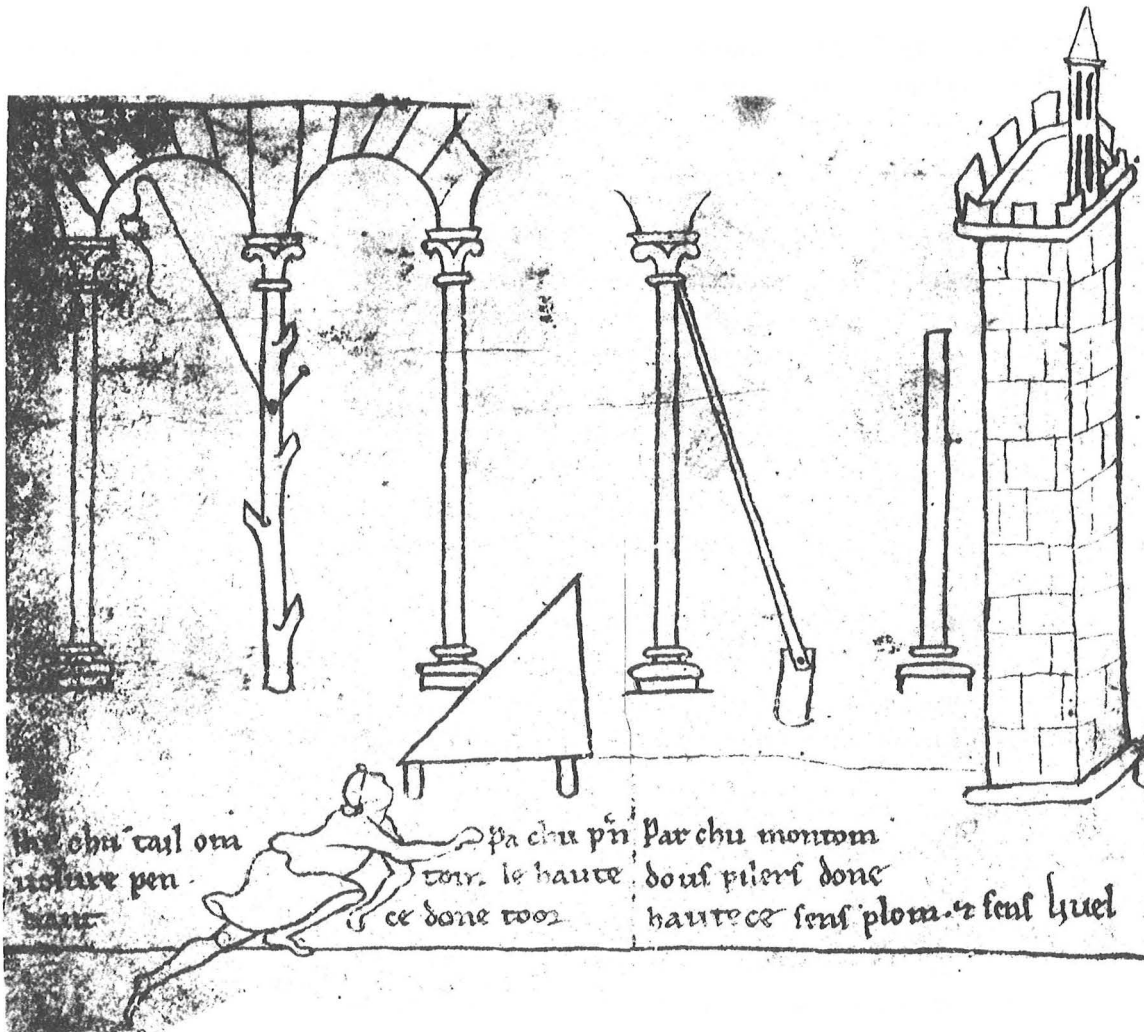 chu tail om
pen
Pa chu pñ
toir. le haute
ce done toor
Par chu montom
dous pilers done
hautece sens plom. & sens liuel